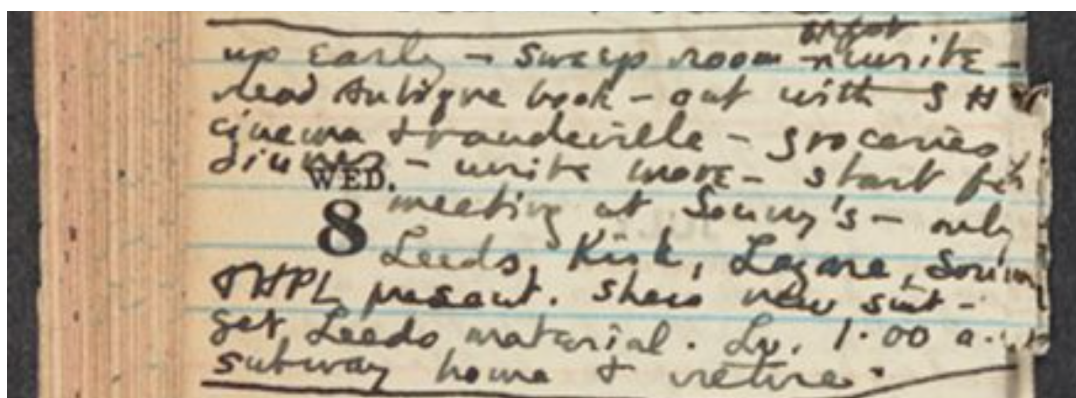 up early – sweep room – write –
read Antique book – out with S H
cinema & vaudeville – groceries
dinner – write more – start for
WED.
meeting at Sonny's – only
8
Leeds, Kirk, Lazare, Sonny
& HPL present. Shew new suit –
get Leeds material. Lv. 1·00 a.m.
subway home & retire.